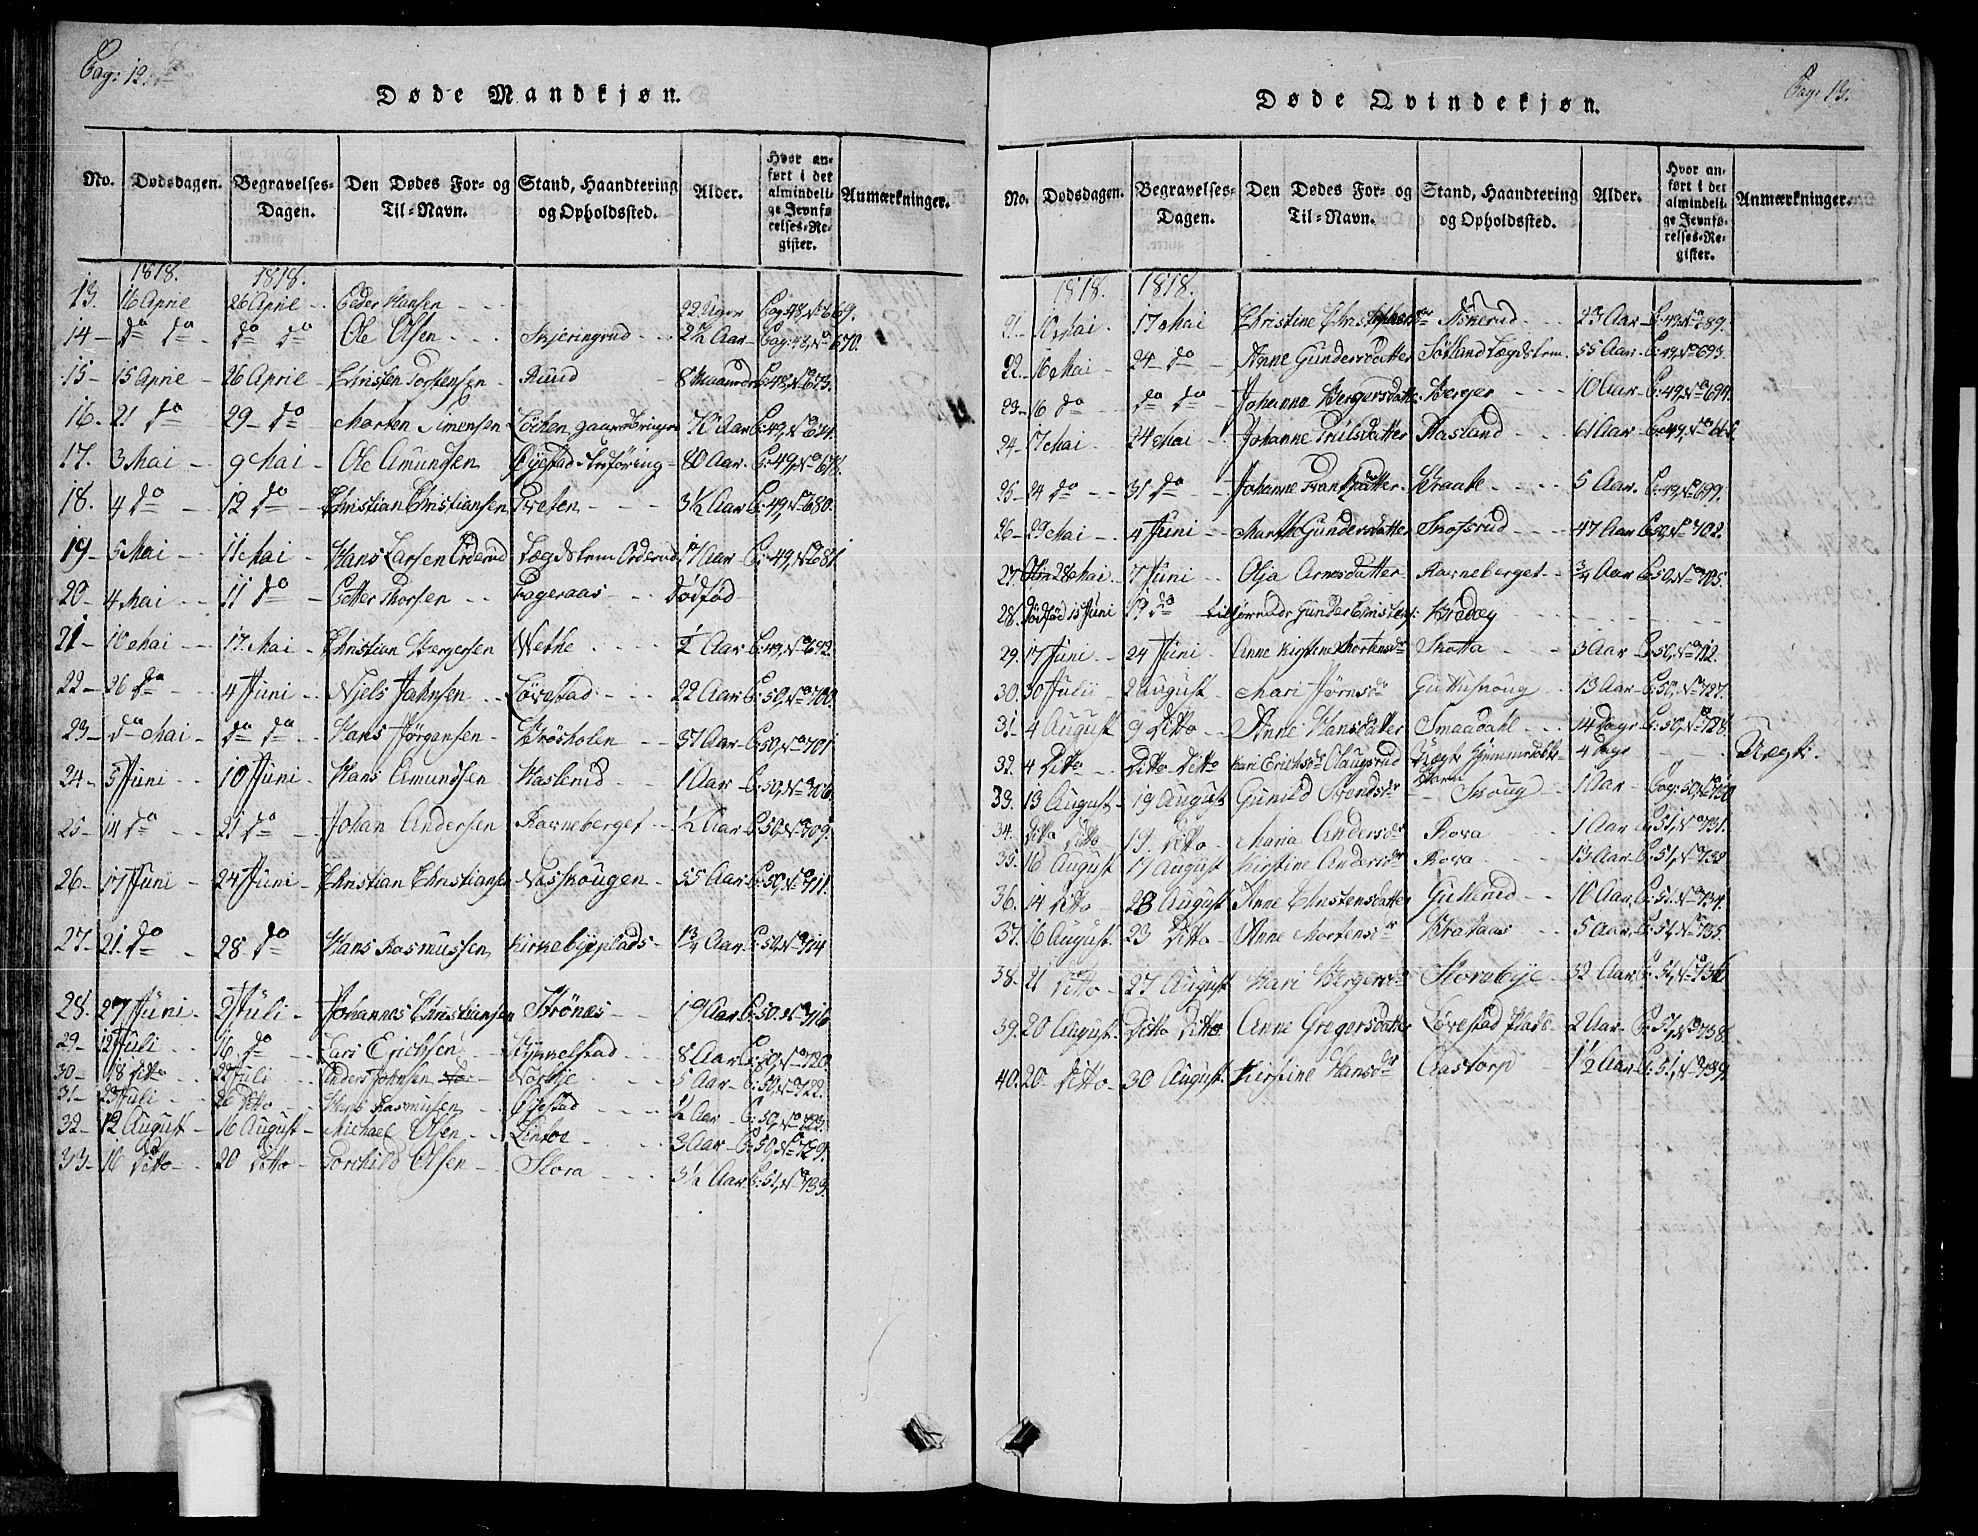 Pag: 12.
Døde Mandkjøn.
No. Dødsdagen. Begravelses-Dagen. Den Dødes For- og Til-Navn. Stand, Haandtering og Opholdssted. Alder. Hvor anført i det almindelige Jevnførelses-Register. Anmærkninger.
1818. 1818.
13. 16 April 26 April Peder Hansen 22 Uger Pag: 48, No 669.
14 do do do do Ole Olsen Skjeringrud 2½ Aar Pag: 48, No 670.
15 15 April 26 April Christen Torstensen Ruud 8 Maaneder P: 48, No 673.
16. 21 do 29 do Morten Simensen 70 Aar P: 49, No
17. 3 Mai 9 Mai Ole Amundsen 80 Aar P: 49, No 678.
18. 4 do 12 do Christian Christiansen Presen 3½ Aar P: 49, No 680.
19 5 Mai 11 Mai Hans Larsen Orderud Lægdslem Orderud 17 Aar P: 49, No 681
20 4 Mai 11 do Petter Thorsen Fageraas dødfød
21 10 Mai 17. Mai Christian Bergersen Nethe ½ Aar P: 49, No 692.
22 26 do 4 Juni Niels Jahnsen Løvestad 22 Aar P: 50, No 700.
23 do Mai do do Hans Jørgensen Brøsholen 37 Aar P: 50, No 701
24 5 Juni 10 Juni Hans Amundsen Haslerud 1 Aar P: 50, No 706.
25 14 do 21 do Johan Andersen Ravneberget ½ Aar P: 50, No 709.
26 17 Juni 24 Juni Christian Christiansen Naskougen 55 Aar P: 50, No 711.
27 21. do 28 do Hans Rasmussen Kirkebyeplads 1¾ Aar P: 50, No 714
28. 27 Juni 2 Juli Johannes Christiansen Strønæs 19 Aar P: 50. No 716
29 12 Juli 16 do Lars Erichsen Kykkelstad 8 Aar P: 50, No 720.
30 18 Ditto 22 Juli Anders Johnsen Norbye 5 Aar P: 50, No 722.
31 23 Juli 26 Ditto Hans Rasmusen Øyestad ½ Aar P: 50, No 723.
32 12 August 16 August Michael Olsen Lintoe 3 Aar P: 50, No 729.
33 16 Ditto 20 Ditto Torchild Olsen Flora 3½ Aar P: 51, No 733.
Pag: 13.
Døde Qvindekjøn.
No. Dødsdagen. Begravelses-Dagen. Den Dødes For- og Til-Navn. Stand, Haandtering og Opholdssted. Alder. Hvor anført i det almindelige Jevnførelses-Register. Anmærkninger.
1818. 1818.
21. 10 Mai 17 Mai Christine Christophersdr Askerud 23 Aar P: 49, No 689.
22. 16 Mai 24 do Anne Gundersdatter Søtland Lægdslem 55 Aar P: 49, No 693.
23 16 do do do Johanne Bergersdatter Berger 10 Aar P: 49, No 694.
24 17 Mai 24 Mai Johanne Truilsdatter Aasland 61 Aar P: 49, No
25 24 do 31 do Johanne Frantzdatter Braate 5 Aar. P: 49, No 699.
26 29 Mai 4 Juni Marthe Gundersdatter Skofsrud 47 Aar P: 50, No 702.
27 28 Mai 7 Juni Olja Arnesdatter Ravneberget ¾ Aar P: 50, No 705.
28. Dødfød 15 Juni 19 do Gunder Kredvey
29. 17 Juni 24 Juni Anne Kirstine Mortensdr Skotta 3 Aar P: 50, No 712.
30. 30 Julii 2 August Mari Jørnsdr Guttuskoug 13 Aar P: 50, No 727.
31 4 August 9 Ditto Anne Hansdatter Smaadahl 14 Dage P: 50, No 728.
32. 4 Ditto Ditto Ditto Kari Erichsdr Haugsrud Uægte Hjemmedøbt Barn 4 Dage Uægt:
33. 13 August 19 August Gunild Svendsdr Skoug 1 Aar Pag: 50, No 730
34. Ditto Ditto 19. Ditto Maria Andersdr Rova 1 Aar P: 51, No 731.
35. 16 August 17 August Kirstine Andersdr Rova 13 Aar P: 51, No 732.
36. 14 Ditto 28 August Anne Christensdatter Gullerud 10 Aar P: 51. No 734.
37. 16 August 23 Ditto Anne Mortensdr Brataas 5 Aar P: 51, No 735.
38 21 Ditto 27 August Kari Bergersdr Storebye 32 Aar P: 51, No 736
39. 20 August Ditto Ditto Anne Gregersdatter Løvestad Plads 2 Aar P: 51, No 738.
40. 20 Ditto 30 August. Kierstine Hansdr Aastorp 1½ Aar P: 51, No 739.